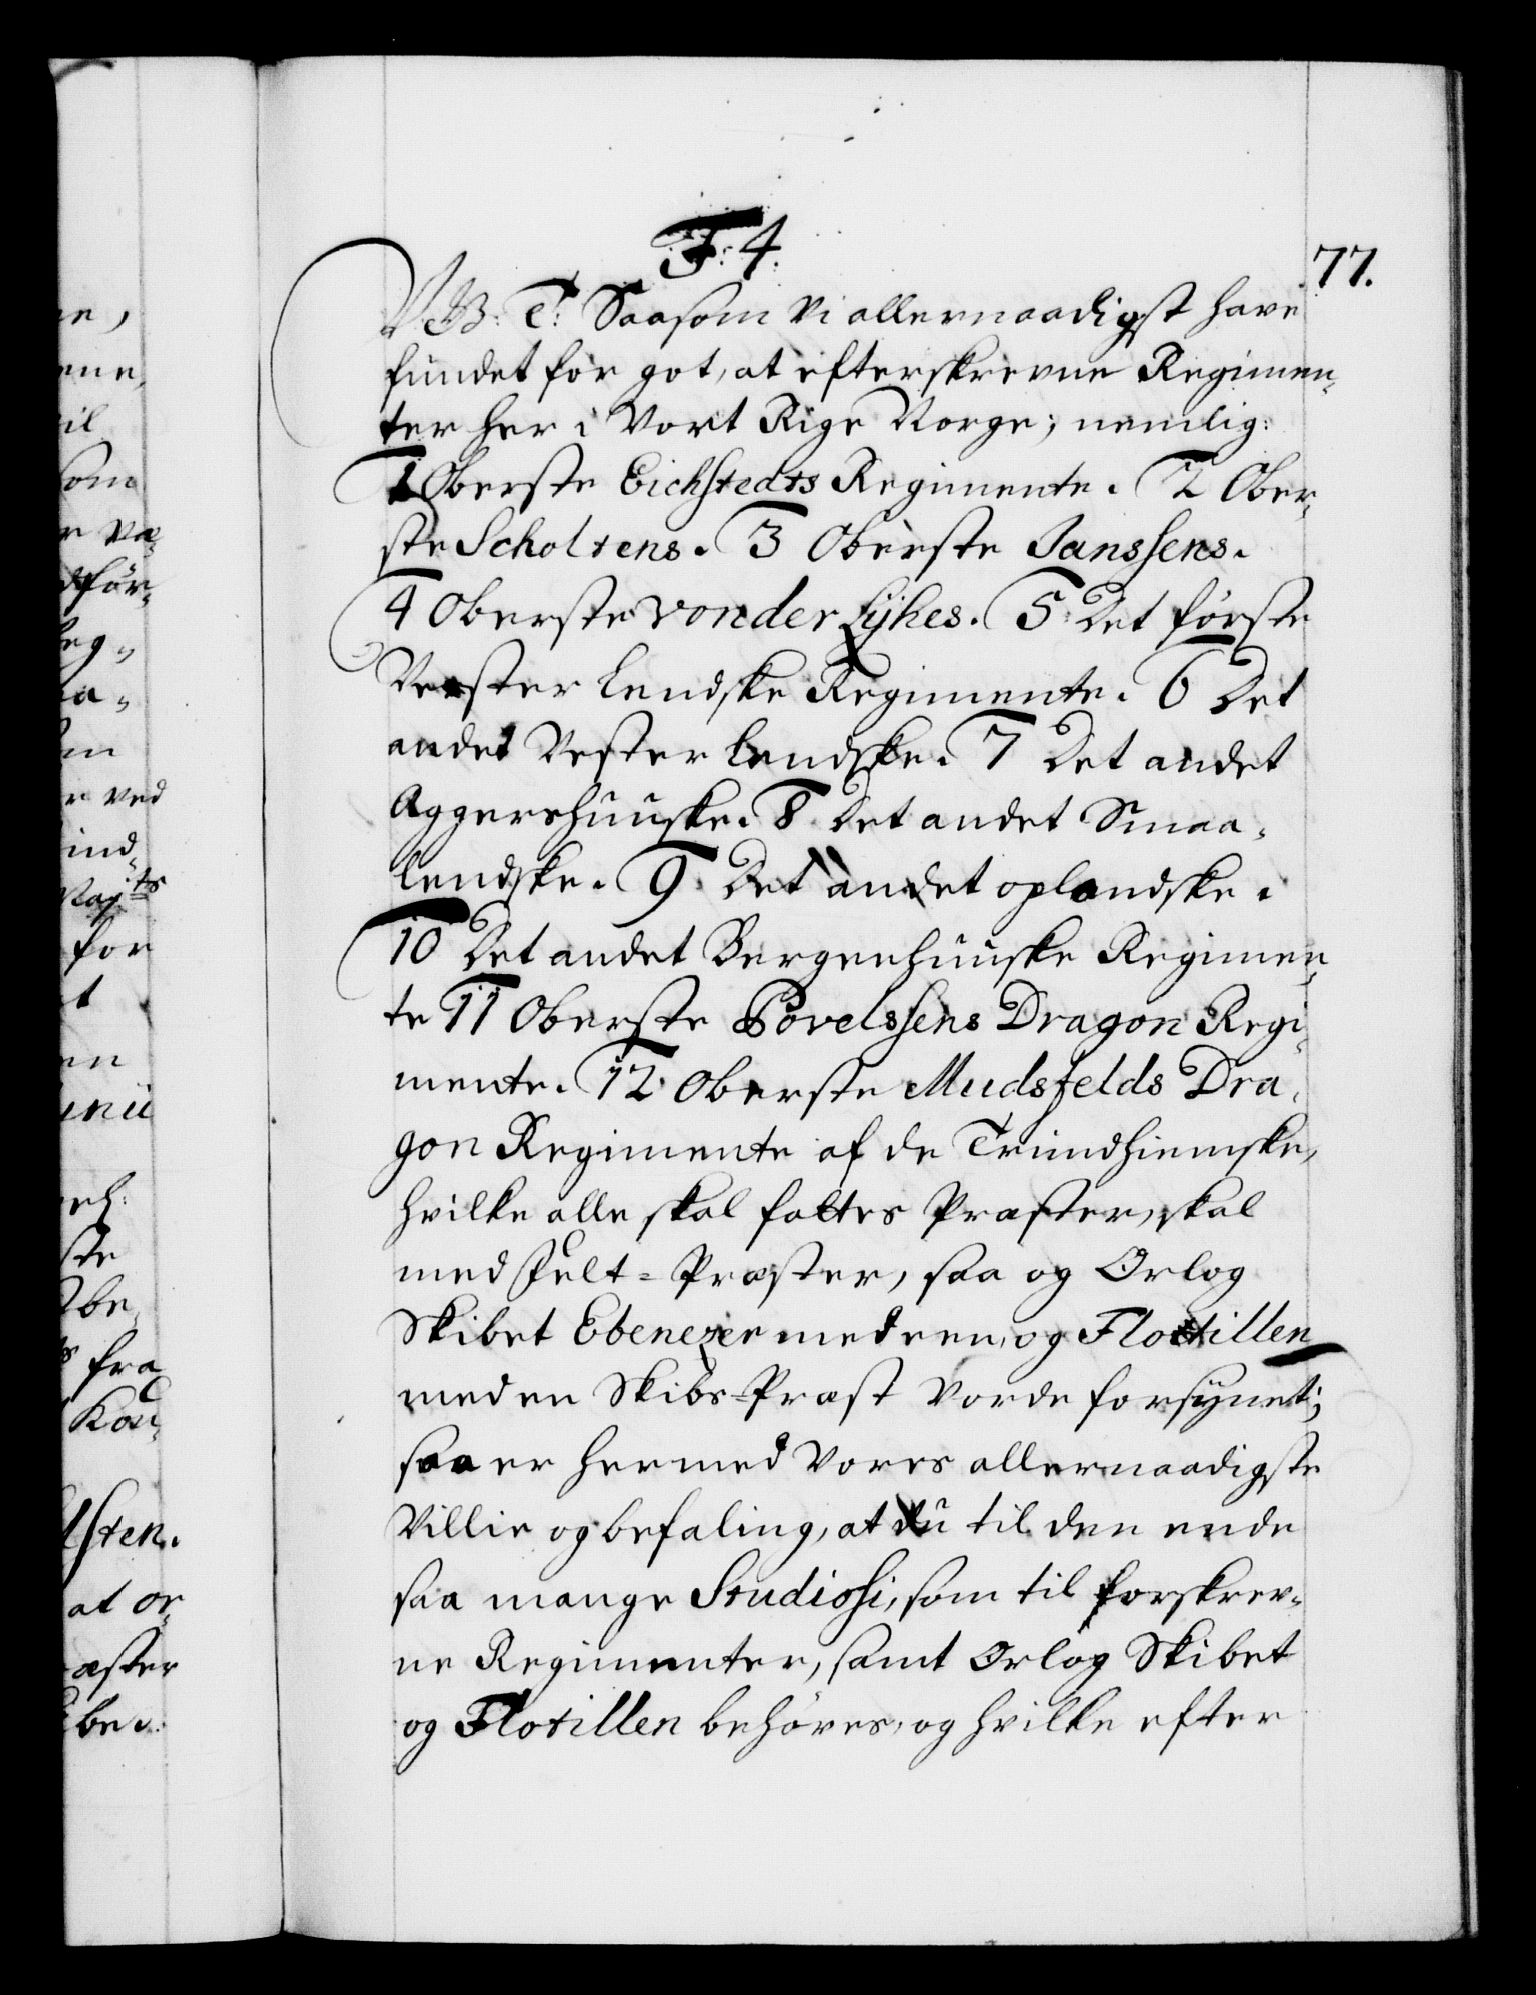 F: 4.
77.
V G: T: Saasom Vi allernaadigst have
fundet for got, at efterskrevne Regimen,
ter her i Vort Rige Norge; nemlig:
1 Oberste Eichstedts Regimente. 2 Ober,
ste Scholtens. 3 Oberste Janssens.
4 Oberste von der Lÿhes. 5 Det første
Vesterlendske Regimente. 6 Det
andet Vesterlendske. 7 Det andet
Aggershuuske. 8 Det andet Smaa,
lendske. 9 Det andet oplandske.
10 Det andet Bergenhuuske Regimen,
te 11 Oberste Povelssens Dragon Regi,
mente. 12 Oberste Mudsfelds Dra,
gon Regimente af de Trundhiemske,
hvilke alle skal fattes Præster, skal
med Felt-Præster, saa og Orlog
Skibet Ebenezer med een, og Flottillen
med en Skibs-Præst vorde forsÿnet;
saa er hermed Vores allernaadigste
Villie og befaling, at du til den ende
saa mange Studiossi, som til forskrev,
ne Regimenter, samt Orlog Skibet
og Flotillen behøves, og hvilke efter